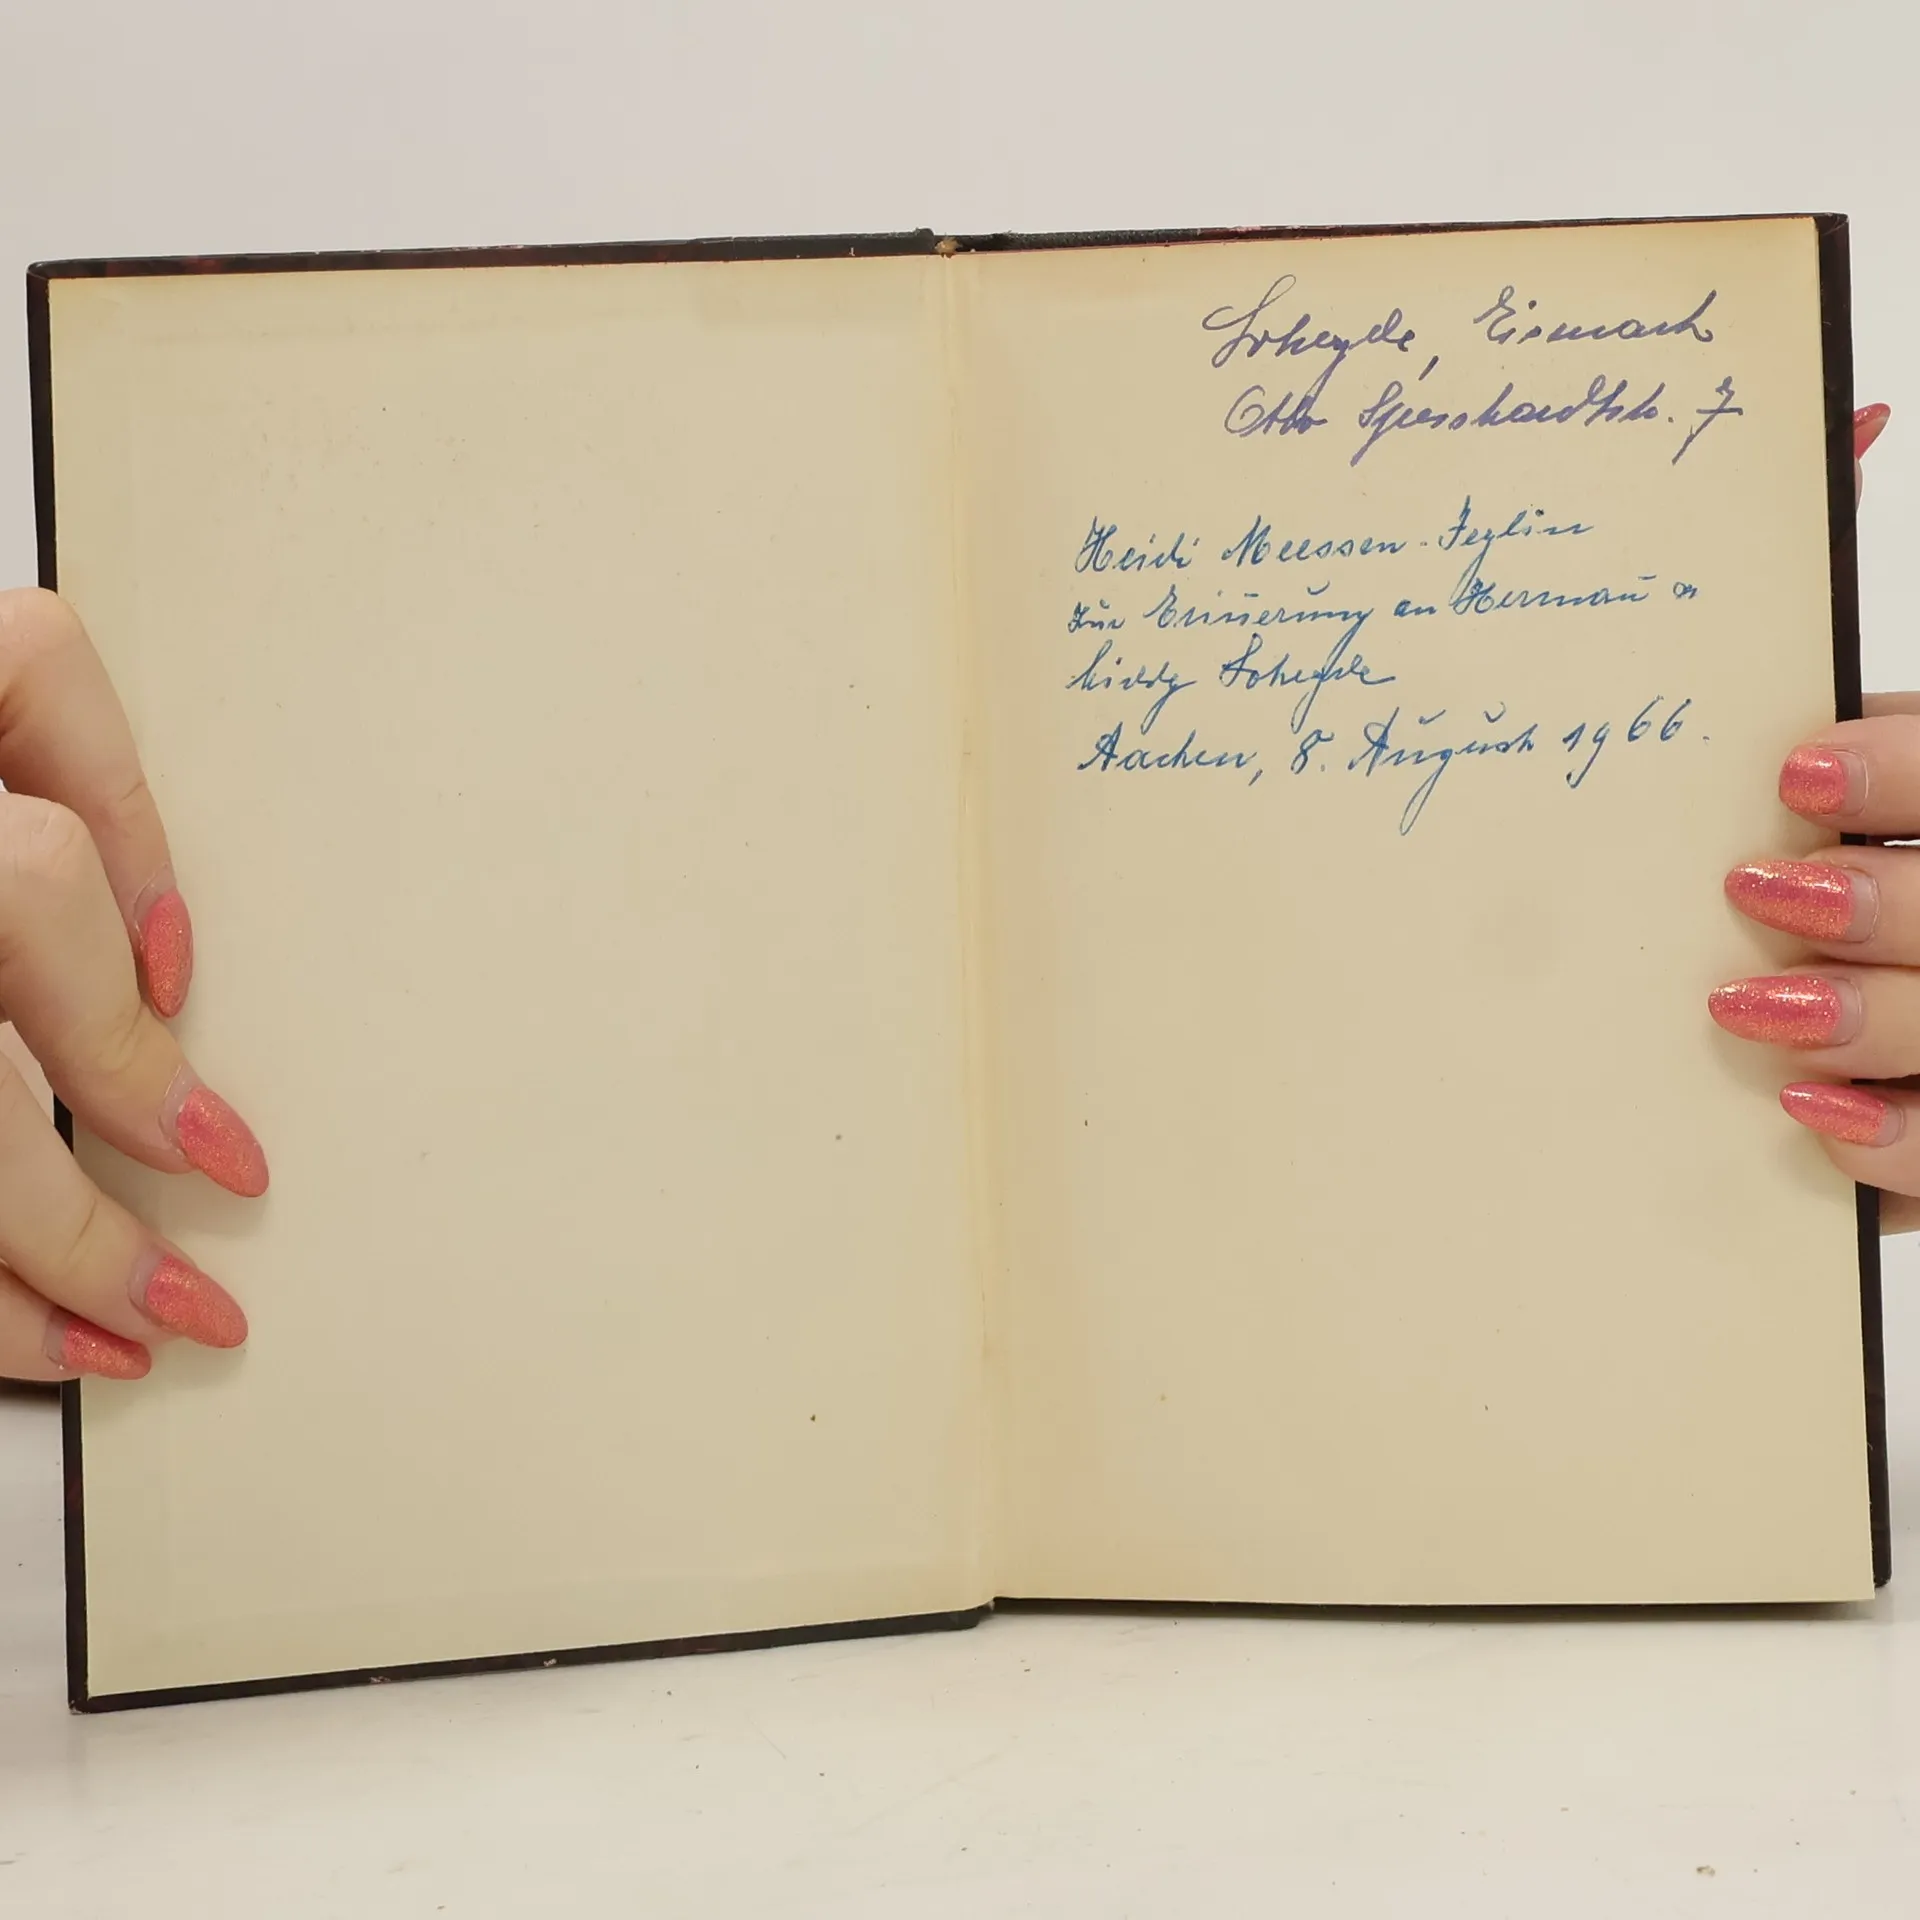 Loheyde, Eisenach
Otto Spesshardtstr. 7
Heidi Meessen-Jeglin
zur Erinnerung an Hermann
Loheyde
Aachen, 8. August 1966.